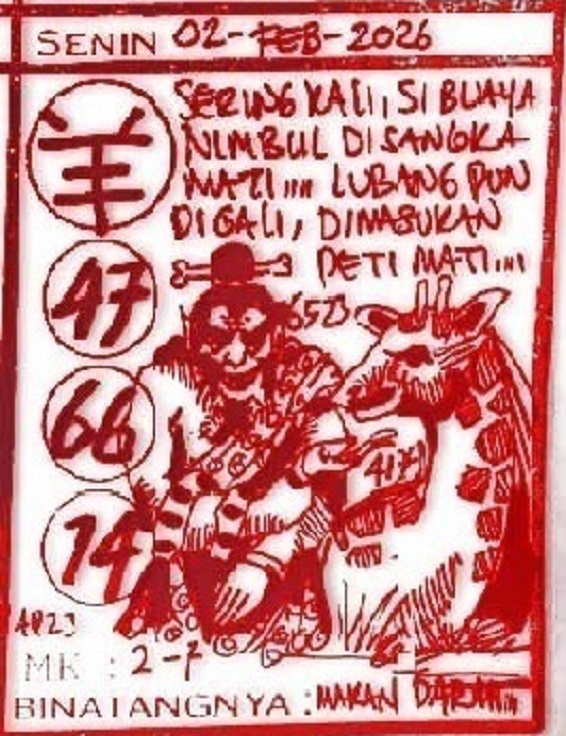 SENIN 02-FEB-2026
羊
SERING KALI, SI BUAYA
NIMBUL DISANGKA
MATI.... LUBANG PUN
DIGALI, DIMASUKAN
PETI MATI....
47
66
74
417
MK : 2-7
BINATANGNYA : MAKAN DARAH...